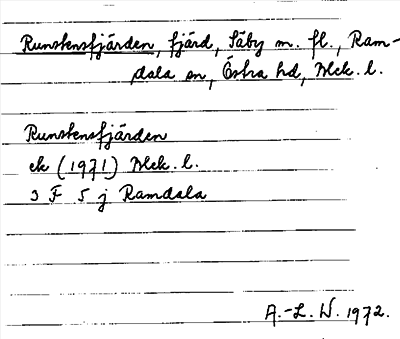 Runstensfjärden, fjärd, Säby m. fl., Ram-
dala sn, Östra hd, Blek. l.
Runstensfjärden
ek (1971) Blek. l.
3 F 5 j Ramdala
A.-L. W. 1972.